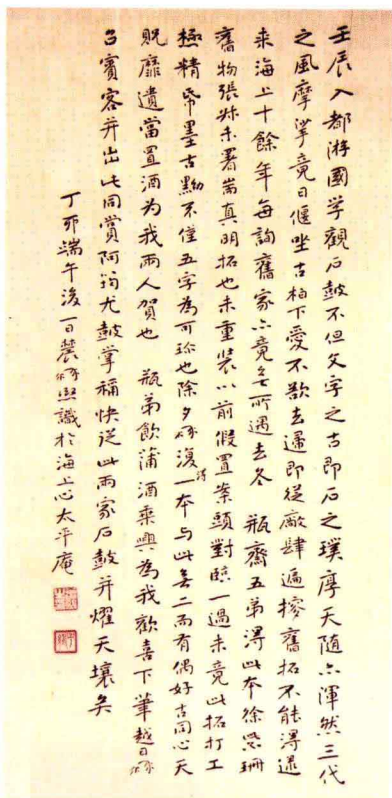 壬辰入都游國学觀石鼓不但文字之古即石之璞厚天随亦渾然三代
之風摩挲竟日偃坐古柏下愛不欲去歸即從廠肆遍搜舊拓不能得逮
来海上十餘年每詢舊家亦竟無所遇去冬 瓶齋五弟得此本徐紫珊
舊物張叔未署耑真明拓也未重裝以前假置案頭對臨一過未竟此拓打工
極精帋墨古黝不僅五字為可珎也除夕 復得一本与此無二而有偶好古同心天
貺靡遺當置酒為我兩人賀也 瓶弟飲蒲酒乘興為我歡喜下筆越日
召賓客并出此同賞阿筠尤鼓掌稱快從此兩家石鼓并耀天壤矣
丁卯端午後一日農 熙識於海上心太平庵